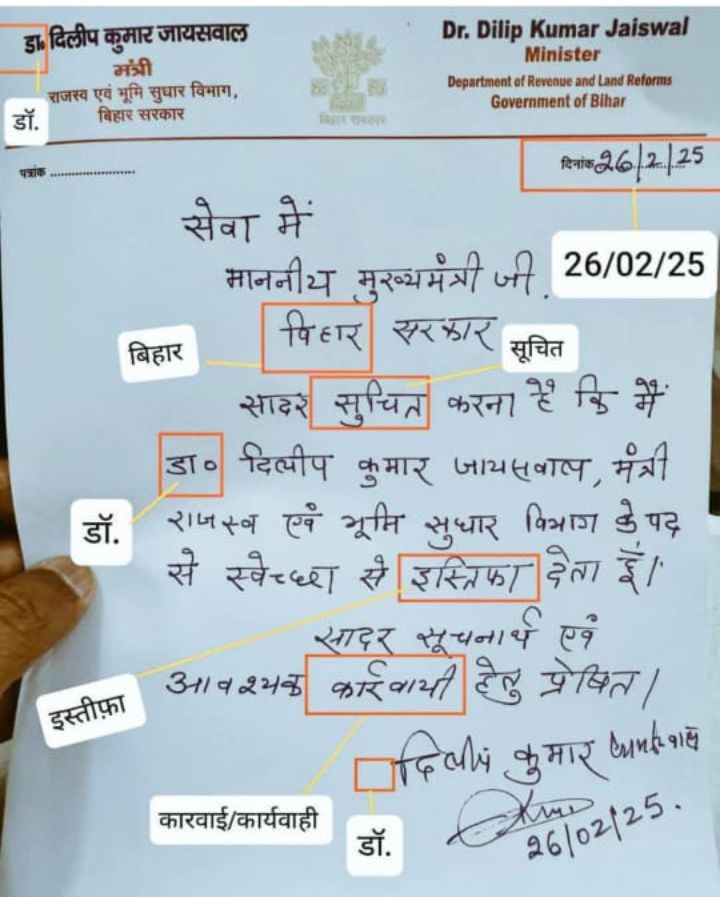 डा. दिलीप कुमार जायसवाल
मंत्री
राजस्व एवं भूमि सुधार विभाग,
बिहार सरकार
डॉ.
बिहार सरकार
Dr. Dilip Kumar Jaiswal
Minister
Department of Revenue and Land Reforms
Government of Bihar
पत्रांक ........................
दिनांक 26/2/25
26/02/25
सेवा में
माननीय मुख्यमंत्री जी.
विहार सरकार
बिहार
सूचित
सादर सुचित करना है कि मैं
डा० दिलीप कुमार जायसवाल, मंत्री
डॉ.
राजस्व एवं भूमि सुधार विभाग के पद
से स्वेच्छा से इस्तिफा देता हूँ।
सादर सूचनार्थ एवं
आवश्यक कार्रवायी हेतु प्रेषित।
इस्तीफ़ा
दिलीप कुमार जायसवाल
कारवाई/कार्यवाही
डॉ.
26/02/25.